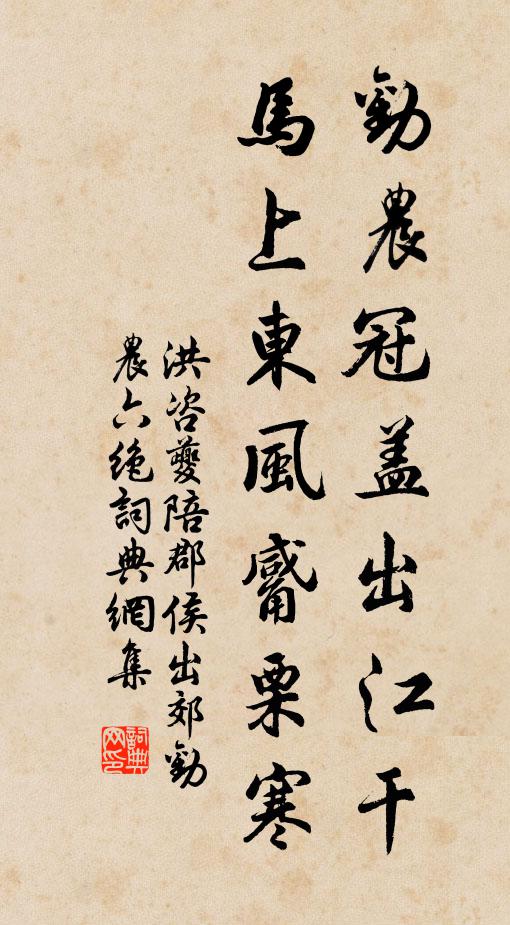 勸農冠蓋出江干
馬上東風觱栗寒
洪咨夔陪郡侯出郊勸
農六絕詞典網集
詞典網印